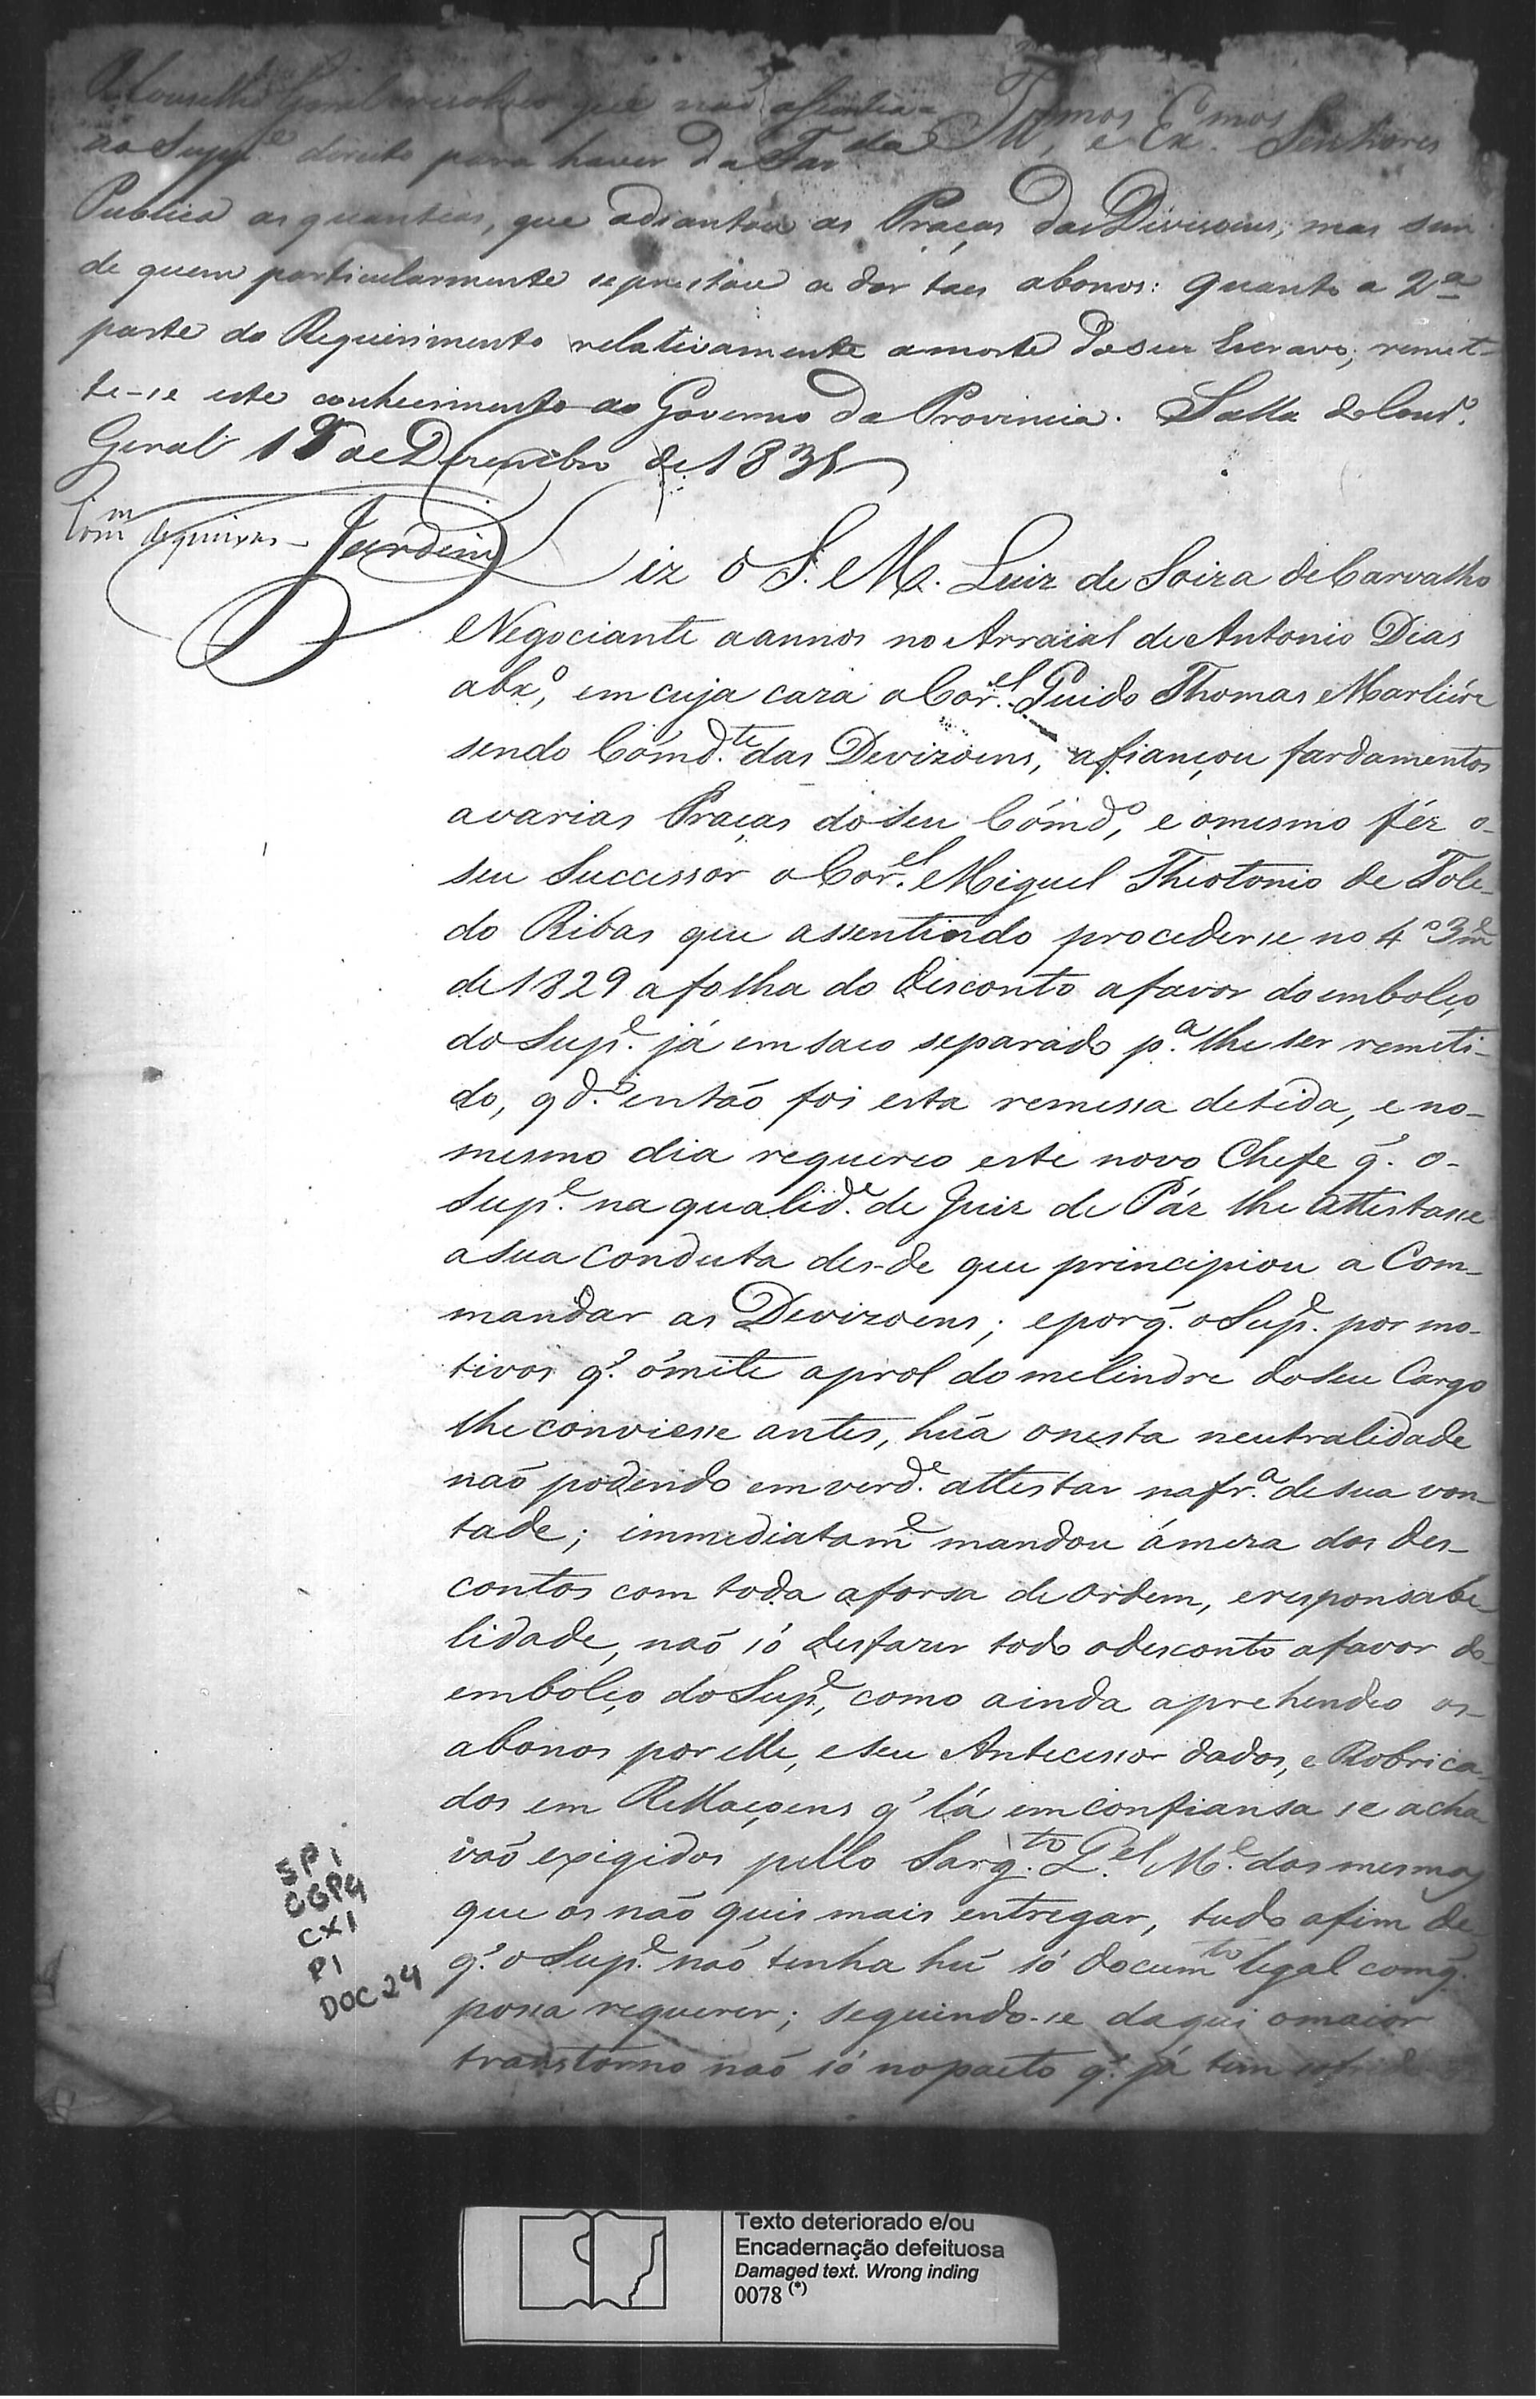 O Conselho Geral resolveo que não assentia
Illmos e Exmos Senhores
ao Suppe direito para haver da Fazda
Publica as quantias, que adiantou as Praças das Divisoens, mas sim
de quem particularmente se prestou a dar taes abonos: quanto a 2a
parte do Requerimento relativamente a morte do seu Escravo, remet-
te-se este conhecimento ao Governo da Provincia. Salla do Cons.o
Geral 18 de Dezembro de 1830
Jardim
Diz o S. M. Luiz de Soiza de Carvalho
Negociante a annos no Arraial de Antonio Dias
abx.o, em cuja caza o Cor.el Guido Thomas Marliére
sendo Cómd.te das Devizoens, afiançou fardamentos
a varias Praças do seu Cómd.o, e o mesmo féz o-
seu Successor o Cor.el Miguel Theotonio de Tole-
do Ribas que assentindo proceder se no 4.o 3m.e
de 1829 a folha do disconto a favor do embolço
do Sup.e já em saco separado p.a lhe ser remeti-
do, qd.o então foi esta remessa detida, e no-
mesmo dia requereo este novo Chefe q. o-
Sup.e na qualid.e de Juiz de Páz lhe attestasse
a sua conduta des-de que principiou a Com-
mandar as Devizoens; e porq. o Sup.e por mo-
tivos q. ómite aprol do melindre do seu Cargo
lhe conviesse antes, húa onesta neutralidade
não podendo em verd.e attestar na fr.a de sua von-
tade; immediatam.e mandou á meza dos des-
contos com toda a forsa de ordem, e responsabe-
lidade, não só desfazer todo o desconto a favor do-
embolço do Sup.e, como ainda aprehendeo os-
abonos por elle, e seu Antecessor dados, e Robrica-
dos em Rellaçoens q' lá em confiansa se acha-
vão exigidos pello Sarg.to Q.el M.e das mesmas
que os não quis mais entregar, tudo afim de-
q. o Sup.e não tenha hú só docum.to legal com q.
possa requerer; seguindo-se daqui o maior
transtorno não só no pacto q. já tem sofrido
SPI
CGP4
CX1
P1
DOC 24
Texto deteriorado e/ou
Encadernação defeituosa
Damaged text. Wrong inding
0078 (*)